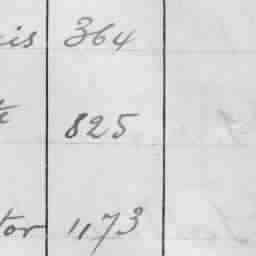 is 364
825
tor 1173